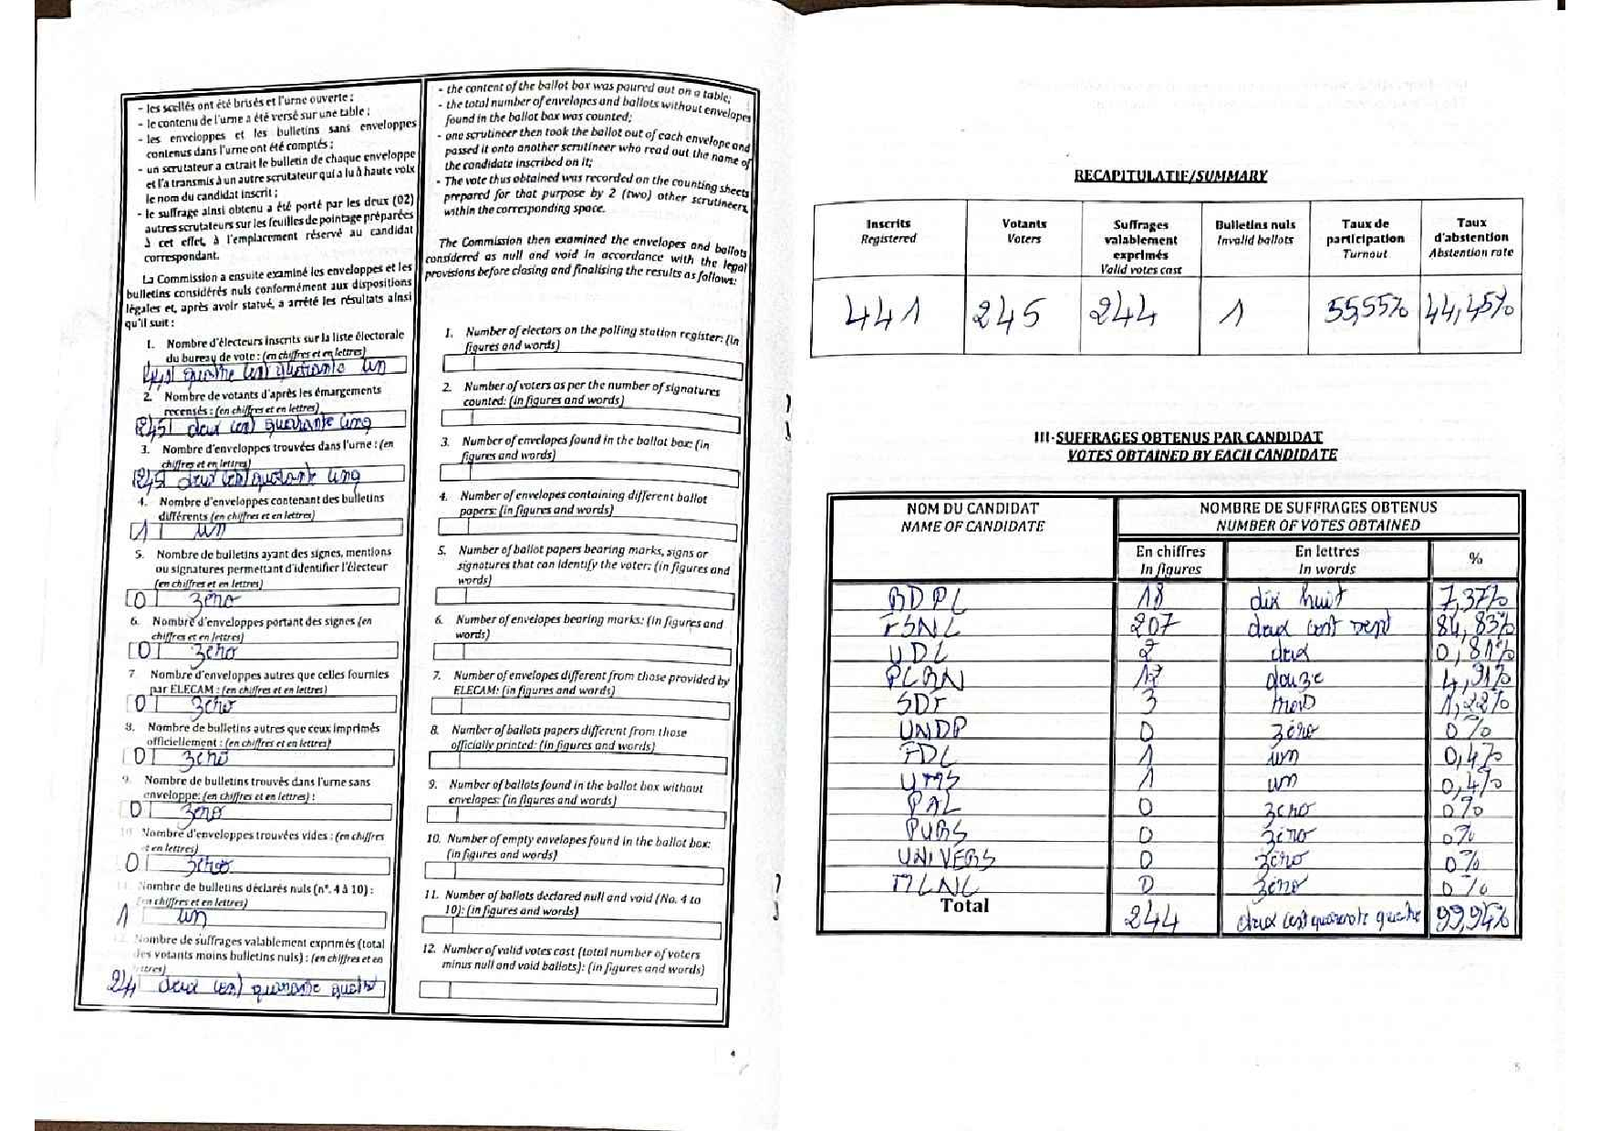 - les scellés ont été brisés et l'urne ouverte ;
- le contenu de l'urne a été versé sur une table ;
- les enveloppes et les bulletins sans enveloppes
contenus dans l'urne ont été comptés ;
- un scrutateur a extrait le bulletin de chaque enveloppe
et l'a transmis à un autre scrutateur qui a lu à haute voix
le nom du candidat inscrit ;
- le suffrage ainsi obtenu a été porté par les deux (02)
autres scrutateurs sur les feuilles de pointage préparées
à cet effet, à l'emplacement réservé au candidat
correspondant.
La Commission a ensuite examiné les enveloppes et les
bulletins considérés nuls conformément aux dispositions
légales et, après avoir statué, a arrêté les résultats ainsi
qu'il suit :
1. Nombre d'électeurs inscrits sur la liste électorale
du bureau de vote : (en chiffres et en lettres)
441 quatre cent quarante un
2. Nombre de votants d'après les émargements
recensés : (en chiffres et en lettres)
245 deux cent quarante cinq
3. Nombre d'enveloppes trouvées dans l'urne : (en
chiffres et en lettres)
245 deux cent quarante cinq
4. Nombre d'enveloppes contenant des bulletins
différents (en chiffres et en lettres)
1 un
5. Nombre de bulletins ayant des signes, mentions
ou signatures permettant d'identifier l'électeur
(en chiffres et en lettres)
0 zéro
6. Nombre d'enveloppes portant des signes (en
chiffres et en lettres)
0 zéro
7 Nombre d'enveloppes autres que celles fournies
par ELECAM : (en chiffres et en lettres)
0 zéro
8. Nombre de bulletins autres que ceux imprimés
officiellement : (en chiffres et en lettres)
0 zéro
9. Nombre de bulletins trouvés dans l'urne sans
enveloppe: (en chiffres et en lettres) :
0 zéro
10. Nombre d'enveloppes trouvées vides : (en chiffres
et en lettres)
0 zéro
11. Nombre de bulletins déclarés nuls (n°. 4 à 10) :
(en chiffres et en lettres)
1 un
12. Nombre de suffrages valablement exprimés (total
des votants moins bulletins nuls) : (en chiffres et en
lettres)
244 deux cent quarante quatre
- the content of the ballot box was poured out on a table;
- the total number of envelopes and ballots without envelopes
found in the ballot box was counted;
- one scrutineer then took the ballot out of each envelope and
passed it onto another scrutineer who read out the name of
the candidate inscribed on it;
- The vote thus obtained was recorded on the counting sheets
prepared for that purpose by 2 (two) other scrutineers,
within the corresponding space.
The Commission then examined the envelopes and ballots
considered as null and void in accordance with the legal
provisions before closing and finalising the results as follows:
1. Number of electors on the polling station register: (in
figures and words)
2. Number of voters as per the number of signatures
counted: (in figures and words)
3. Number of envelopes found in the ballot box: (in
figures and words)
4. Number of envelopes containing different ballot
papers: (in figures and words)
5. Number of ballot papers bearing marks, signs or
signatures that can identify the voter: (in figures and
words)
6. Number of envelopes bearing marks: (in figures and
words)
7. Number of envelopes different from those provided by
ELECAM: (in figures and words)
8. Number of ballots papers different from those
officially printed: (in figures and words)
9. Number of ballots found in the ballot box without
envelopes: (in figures and words)
10. Number of empty envelopes found in the ballot box:
(in figures and words)
11. Number of ballots declared null and void (No. 4 to
10): (in figures and words)
12. Number of valid votes cast (total number of voters
minus null and void ballots): (in figures and words)
4
RECAPITULATIF/SUMMARY
Inscrits Registered | Votants Voters | Suffrages valablement exprimés Valid votes cast | Bulletins nuls Invalid ballots | Taux de participation Turnout | Taux d'abstention Abstention rate
441 245 244 1 55,55% 44,45%
III-SUFFRAGES OBTENUS PAR CANDIDAT
VOTES OBTAINED BY EACH CANDIDATE
NOM DU CANDIDAT NOMBRE DE SUFFRAGES OBTENUS
NAME OF CANDIDATE NUMBER OF VOTES OBTAINED
En chiffres En lettres %
In figures In words
BDPC 18 dix huit 7,37%
FSNC 207 deux cent sept 84,83%
UDC 2 deux 0,81%
PCRN 12 douze 4,91%
SDF 3 trois 1,22%
UNDP 0 zéro 0%
FDC 1 un 0,4%
UMS 1 un 0,4%
PAL 0 zéro 0%
PURS 0 zéro 0%
UNIVERS 0 zéro 0%
MCNC 0 zéro 0%
Total 244 deux cent quarante quatre 99,94%
5